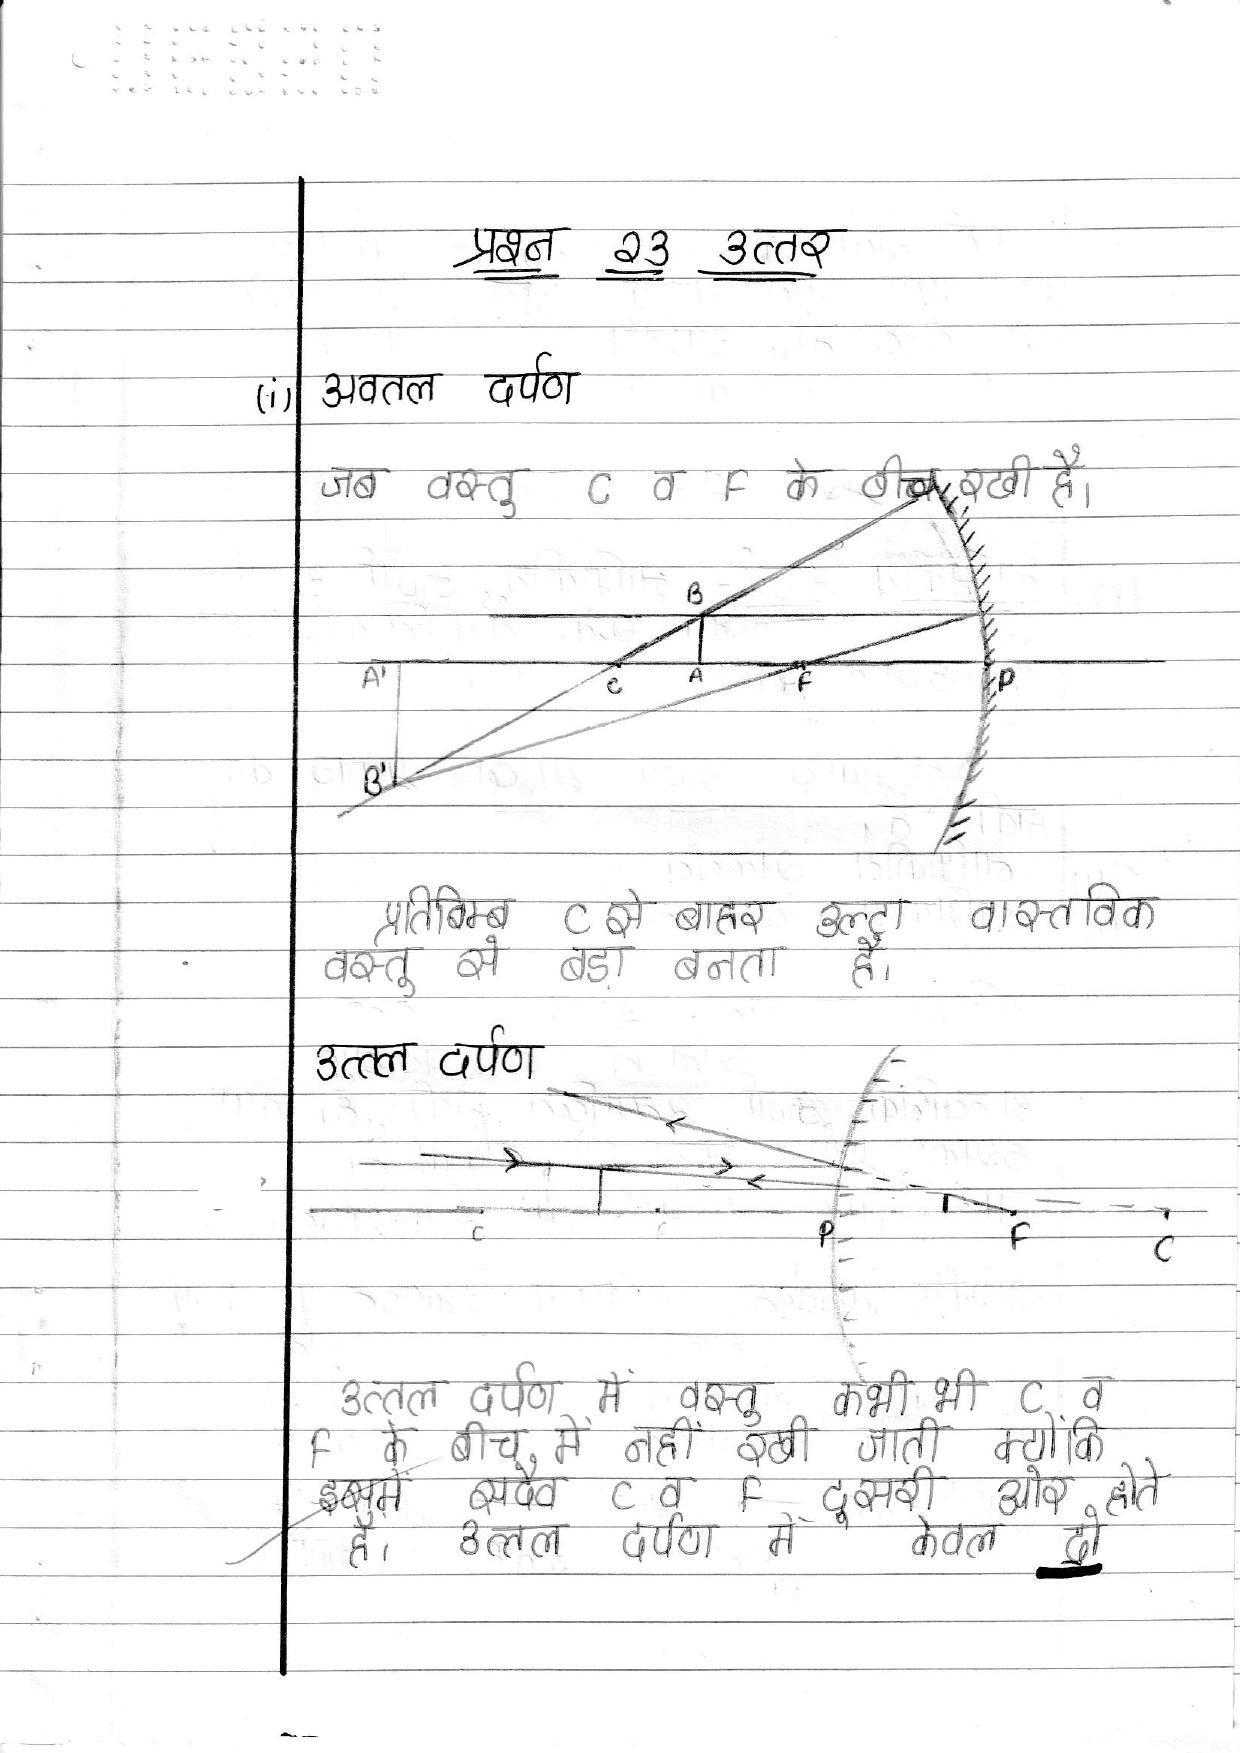 प्रश्न २३ उत्तर
(i) अवतल दर्पण
जब वस्तु C व F के बीच रखी है।
B
A' C A F P
B'
प्रतिबिम्ब C से बाहर उल्टा वास्तविक
वस्तु से बड़ा बनता है।
उत्तल दर्पण
C P F C
उत्तल दर्पण में वस्तु कभी भी C व
F के बीच में नहीं रखी जाती क्योंकि
इसमें सदैव C व F दूसरी ओर होते
है। उत्तल दर्पण में केवल दो